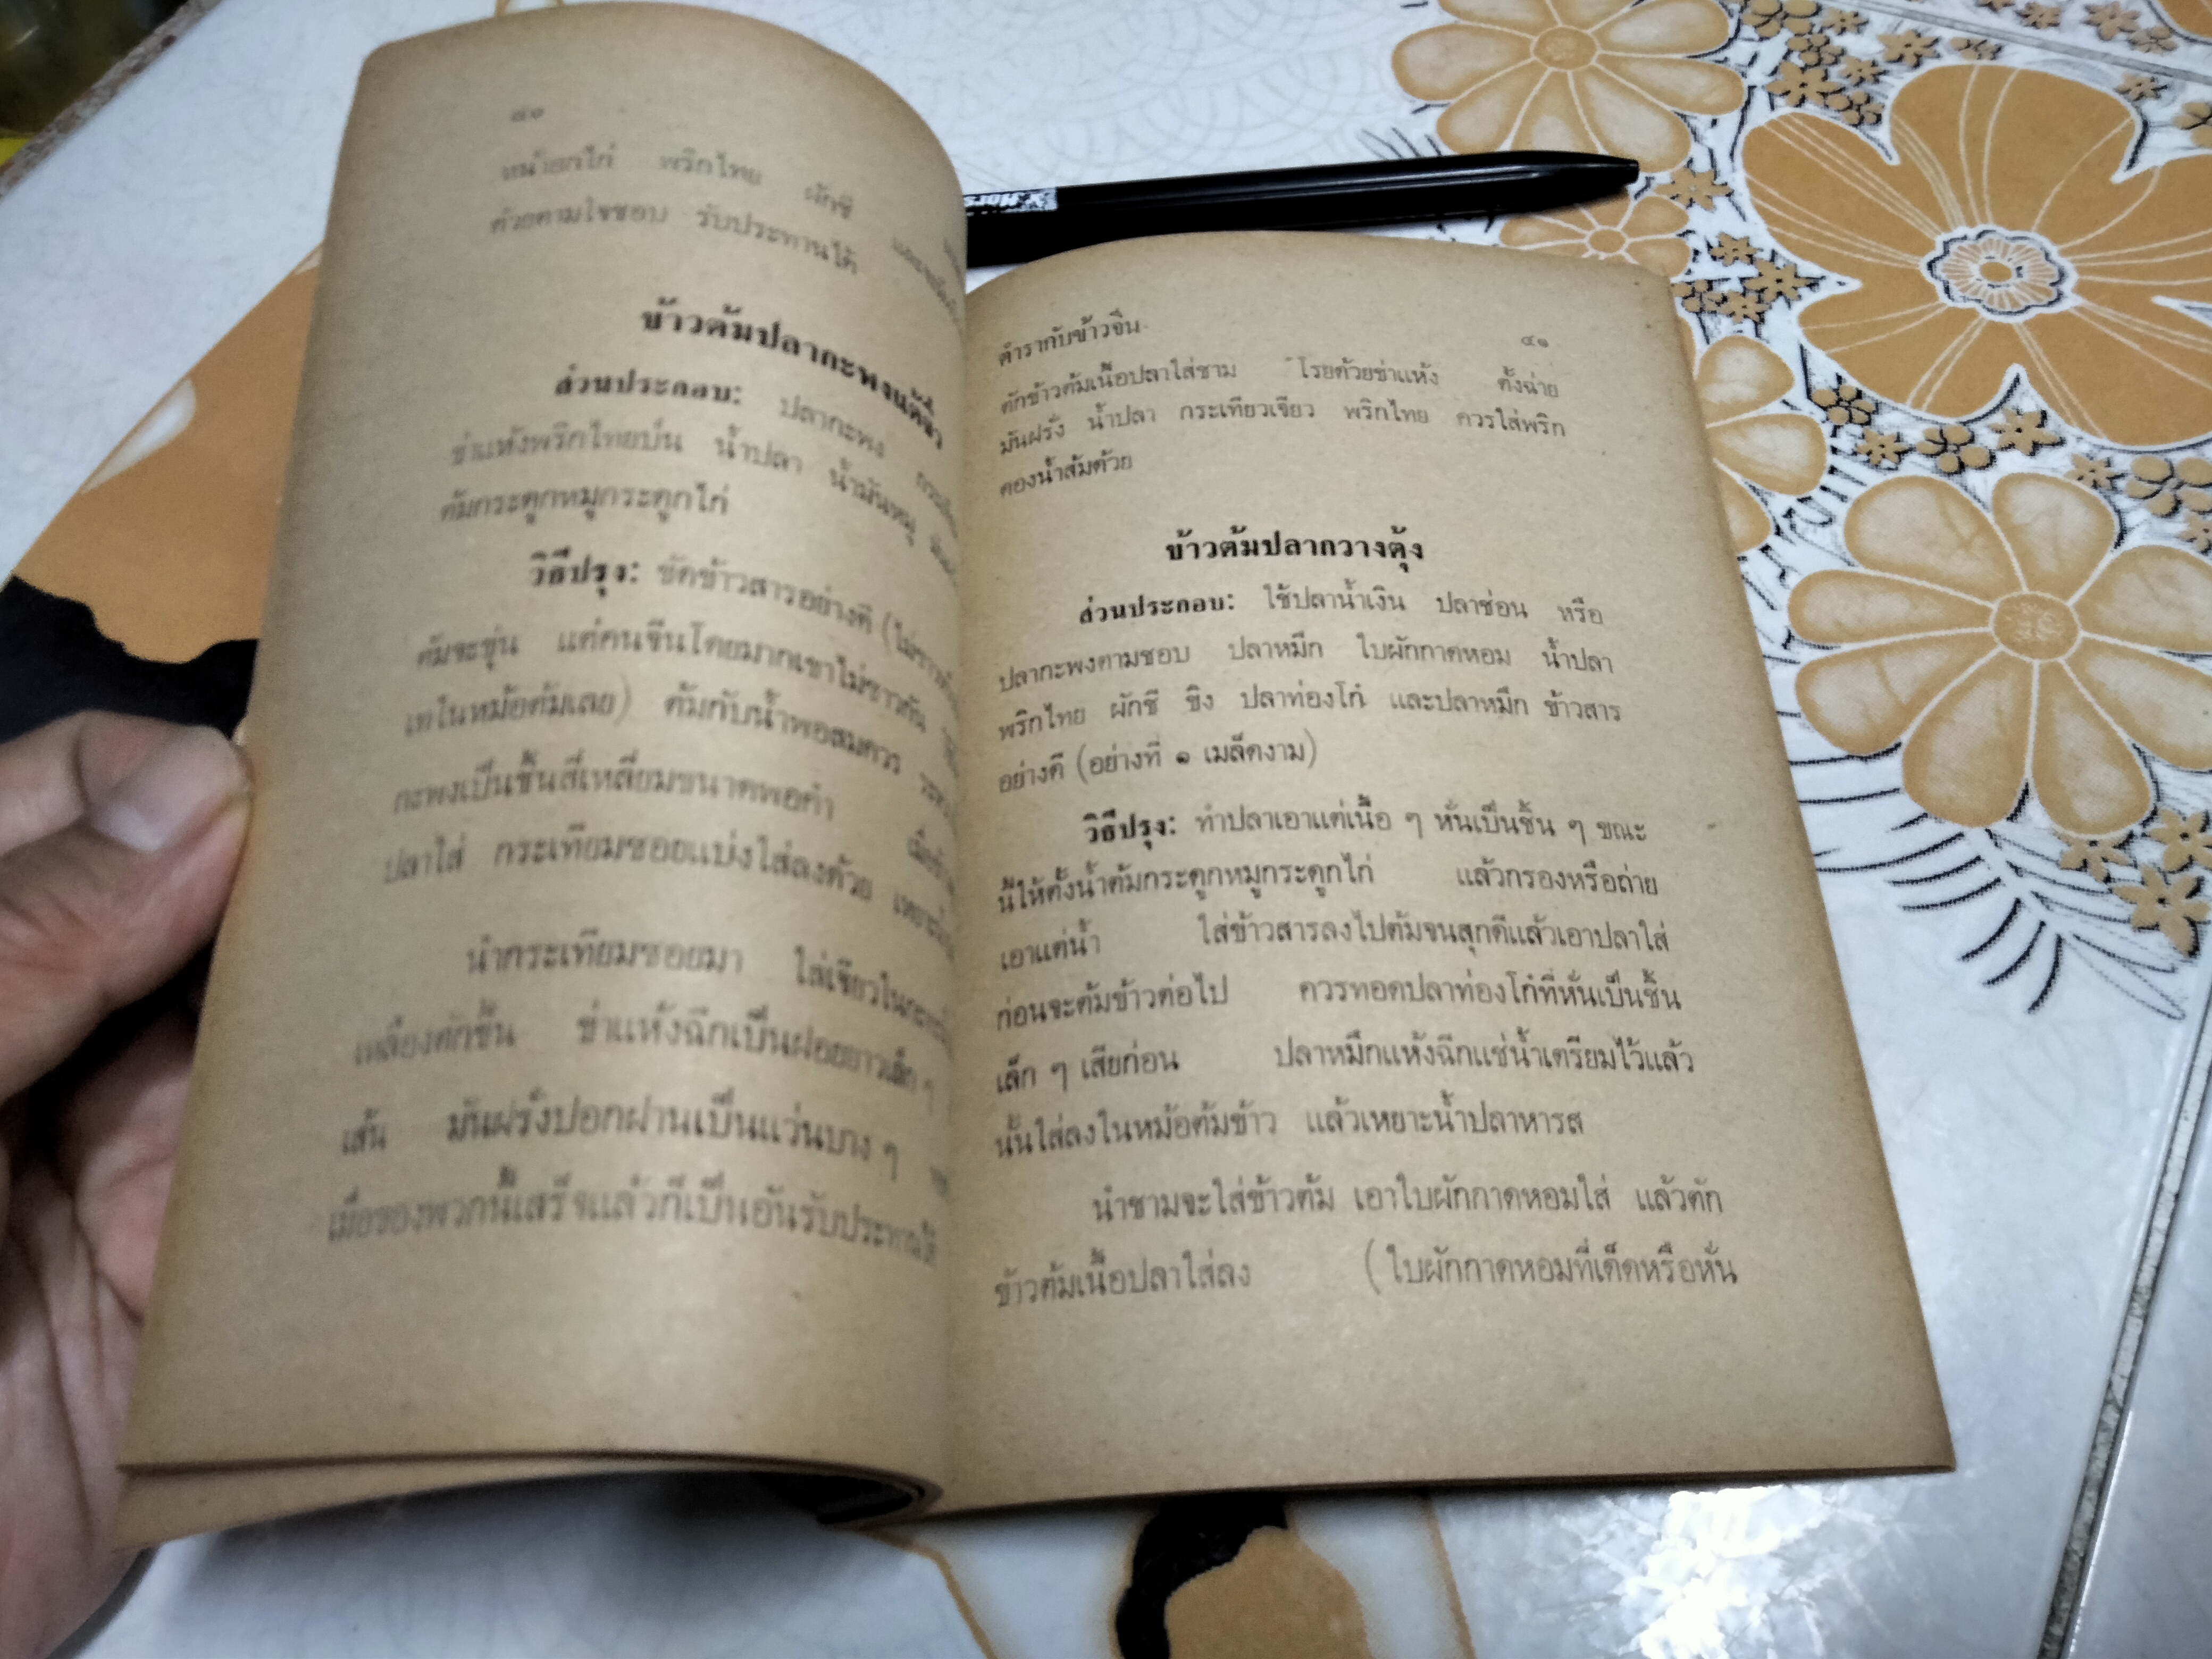 ๔๐
หน้าอกไก่ พริกไทย ผักชี
ด้วยตามใจชอบ รับประทานได้
ข้าวต้มปลากะพงแต้จิ๋ว
ส่วนประกอบ: ปลากะพง
ข่าแห้งพริกไทยป่น น้ำปลา น้ำมันหมู
ต้มกระดูกหมูกระดูกไก่
วิธีปรุง: ขัดข้าวสารอย่างดี
ต้มจะขุ่น แต่คนจีนโดยมากเขาไม่ซาวกัน
เทในหม้อต้มเลย) ต้มกับน้ำพอสมควร
กะพงเป็นชิ้นสี่เหลี่ยมขนาดพอคำ
ปลาใส่ กระเทียมซอยแบ่งใส่ลงด้วย
นำกระเทียมซอยมา ใส่เจียวใน
เหลืองตักขึ้น ข่าแห้งฉีกเป็นฝอยยาวเล็ก ๆ
เส้น มันฝรั่งปอกฝานเป็นแว่นบาง ๆ
เมื่อของพวกนี้เสร็จแล้วก็เป็นอันรับประทานได้
ตำรากับข้าวจีน
๔๑
ตักข้าวต้มเนื้อปลาใส่ชาม โรยด้วยข่าแห้ง ตั้งฉ่าย
มันฝรั่ง น้ำปลา กระเทียวเจียว พริกไทย ควรใส่พริก
ดองน้ำส้มด้วย
ข้าวต้มปลากวางตุ้ง
ส่วนประกอบ: ใช้ปลาน้ำเงิน ปลาช่อน หรือ
ปลากะพงตามชอบ ปลาหมึก ใบผักกาดหอม น้ำปลา
พริกไทย ผักชี ขิง ปลาท่องโก๋ และปลาหมึก ข้าวสาร
อย่างดี (อย่างที่ ๑ เมล็ดงาม)
วิธีปรุง: ทำปลาเอาแต่เนื้อ ๆ หั่นเป็นชิ้น ๆ ขณะ
นี้ให้ตั้งน้ำต้มกระดูกหมูกระดูกไก่ แล้วกรองหรือถ่าย
เอาแต่น้ำ ใส่ข้าวสารลงไปต้มจนสุกดีแล้วเอาปลาใส่
ก่อนจะต้มข้าวต่อไป ควรทอดปลาท่องโก๋ที่หั่นเป็นชิ้น
เล็ก ๆ เสียก่อน ปลาหมึกแห้งฉีกแช่น้ำเตรียมไว้แล้ว
นั้นใส่ลงในหม้อต้มข้าว แล้วเหยาะน้ำปลาหารส
นำชามจะใส่ข้าวต้ม เอาใบผักกาดหอมใส่ แล้วตัก
ข้าวต้มเนื้อปลาใส่ลง (ใบผักกาดหอมที่เด็ดหรือหั่น